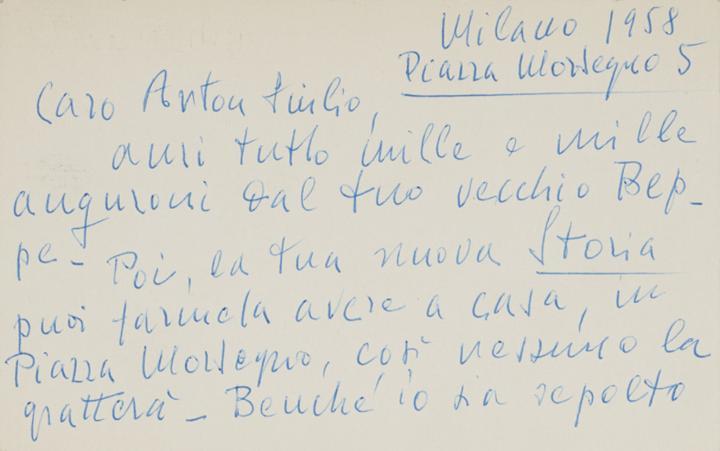 Milano 1958
Piazza Morsegno 5
Caro Anton Giulio,
anzi tutto mille e mille
anguroni dal tuo vecchio Bep-
pe - Poi, la tua nuova Storia
puoi farmela avere a casa, in
Piazza Morsegno, così nessuno la
gratterà - Benché io sia sepolto